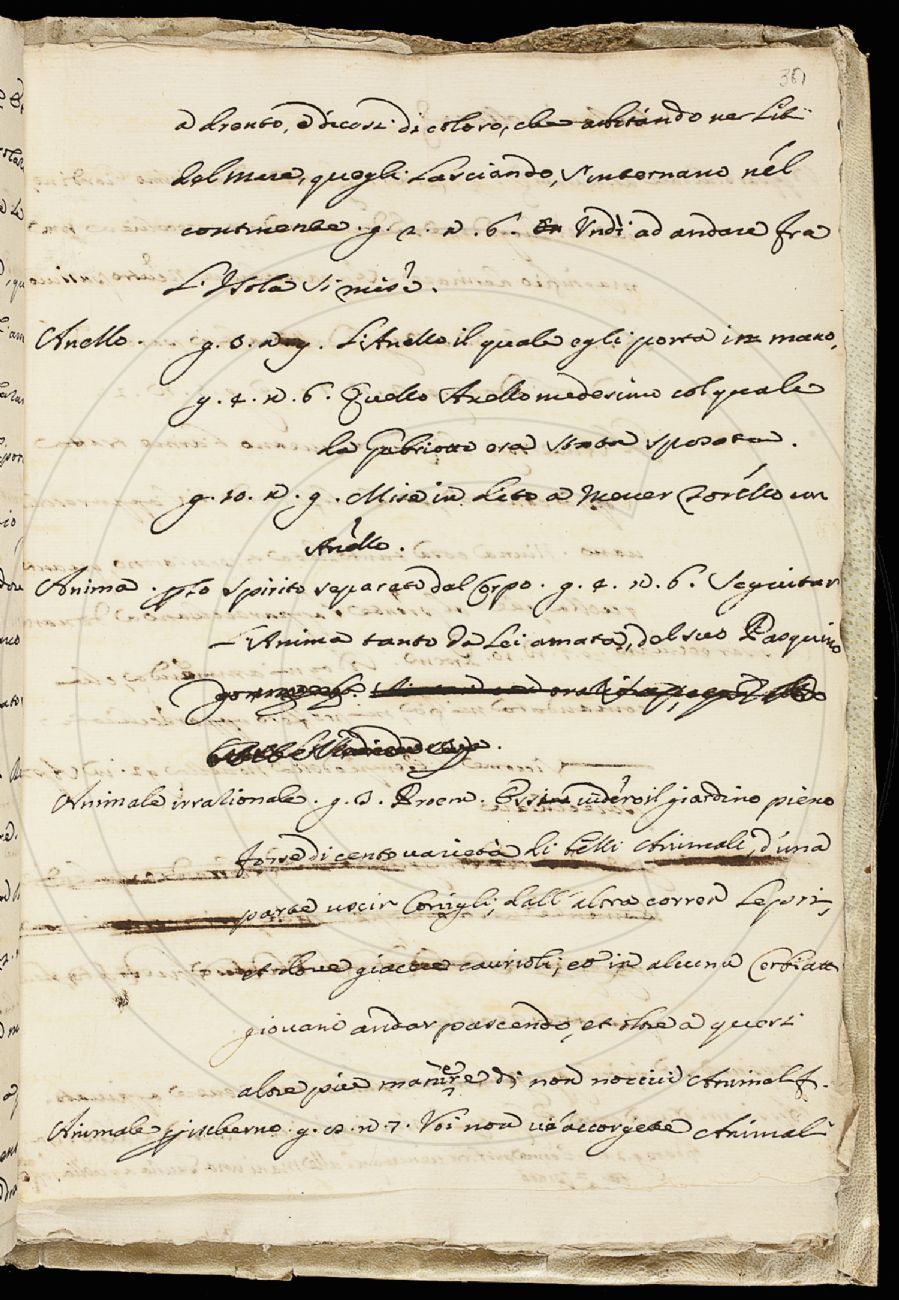 361
a drento, e dicesi di coloro, che abitando ne Liti
del mare, quegli Lasciando, s'internano nel
continente. g. 2. n. 6. Undi ad andare fra
L'Isola si mise.
Anello. g. 3. n. 9. L'Anello il quale egli porta in mano,
g. 4. n. 6. Quello Anello medesimo col quale
la Gabriotto era stata sposata.
g. 10. n. 9. Mise in dito a Messer Torello un
Anello.
Anima. p Lo spirito separato dal Corpo. g. 4. n. 6. Seguitar
L'Anima tanto da Lei amata, del suo Pasquino
Animale irrationale. g. 3. Proem. Essi videro il giardino pieno
forse di cento varietà di belli Animali, d'una
parte uscir Conigli, dall'altra correr Lepri,
et dove giacere caurioli, et in alcuna Cerbiatti
giovani andar pascendo, et oltre a questi
altre più maniere di non nocivi Animali.
Animale p ischerno. g. 8. n. 7. Voi non v'accorgete Animali